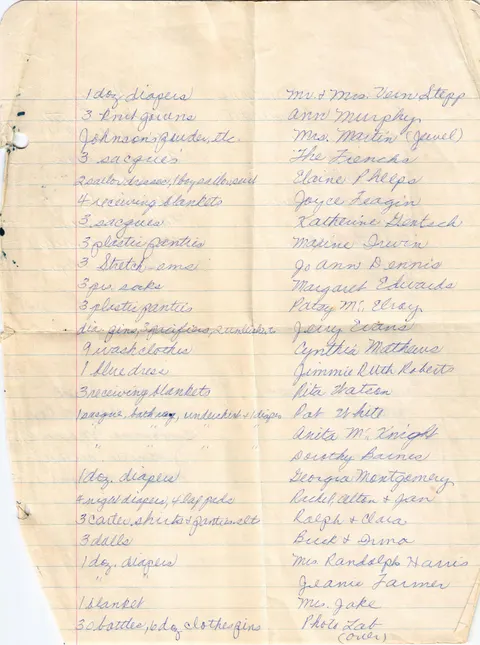 1 doz diapers Mr. & Mrs. Vern Stepp
3 Knit gowns Ann Murphy
Johnsons powder, etc. Mrs. Martin (Jewel)
3 sacques The Frenchs
2 sailor dresses, 1 boy sailor suit Elaine Phelps
4 receiving blankets Joyce Feagin
3 sacques Katherine Gentsch
3 plastic panties Maxine Irwin
3 Stretch-ems Jo Ann Dennis
3 prs socks Margaret Edwards
3 plastic panties Patsy Mc Elroy
dia. pins, 2 pacifiers, Jerry Evans
9 washclothes Cynthia Mathews
1 blue dress Jimmie Ruth Roberts
3 receiving blankets Rita Watson
1 sacque, bath rag, undershirt & 1 diaper Pat White
" " " " Anita Mc Knight
Dorothy Barnes
1 doz. diapers Georgia Montgomery
diapers, 4 lap pads Alton & Jan
3 carter shirts & Ralph & Clara
3 dolls Buck & Irma
1 doz. diapers Mrs. Randolph Harris
" " Jeanie Farmer
1 blanket Mrs. Jake
3 bottles, 6 doz clothespins Photo Lab
(over)